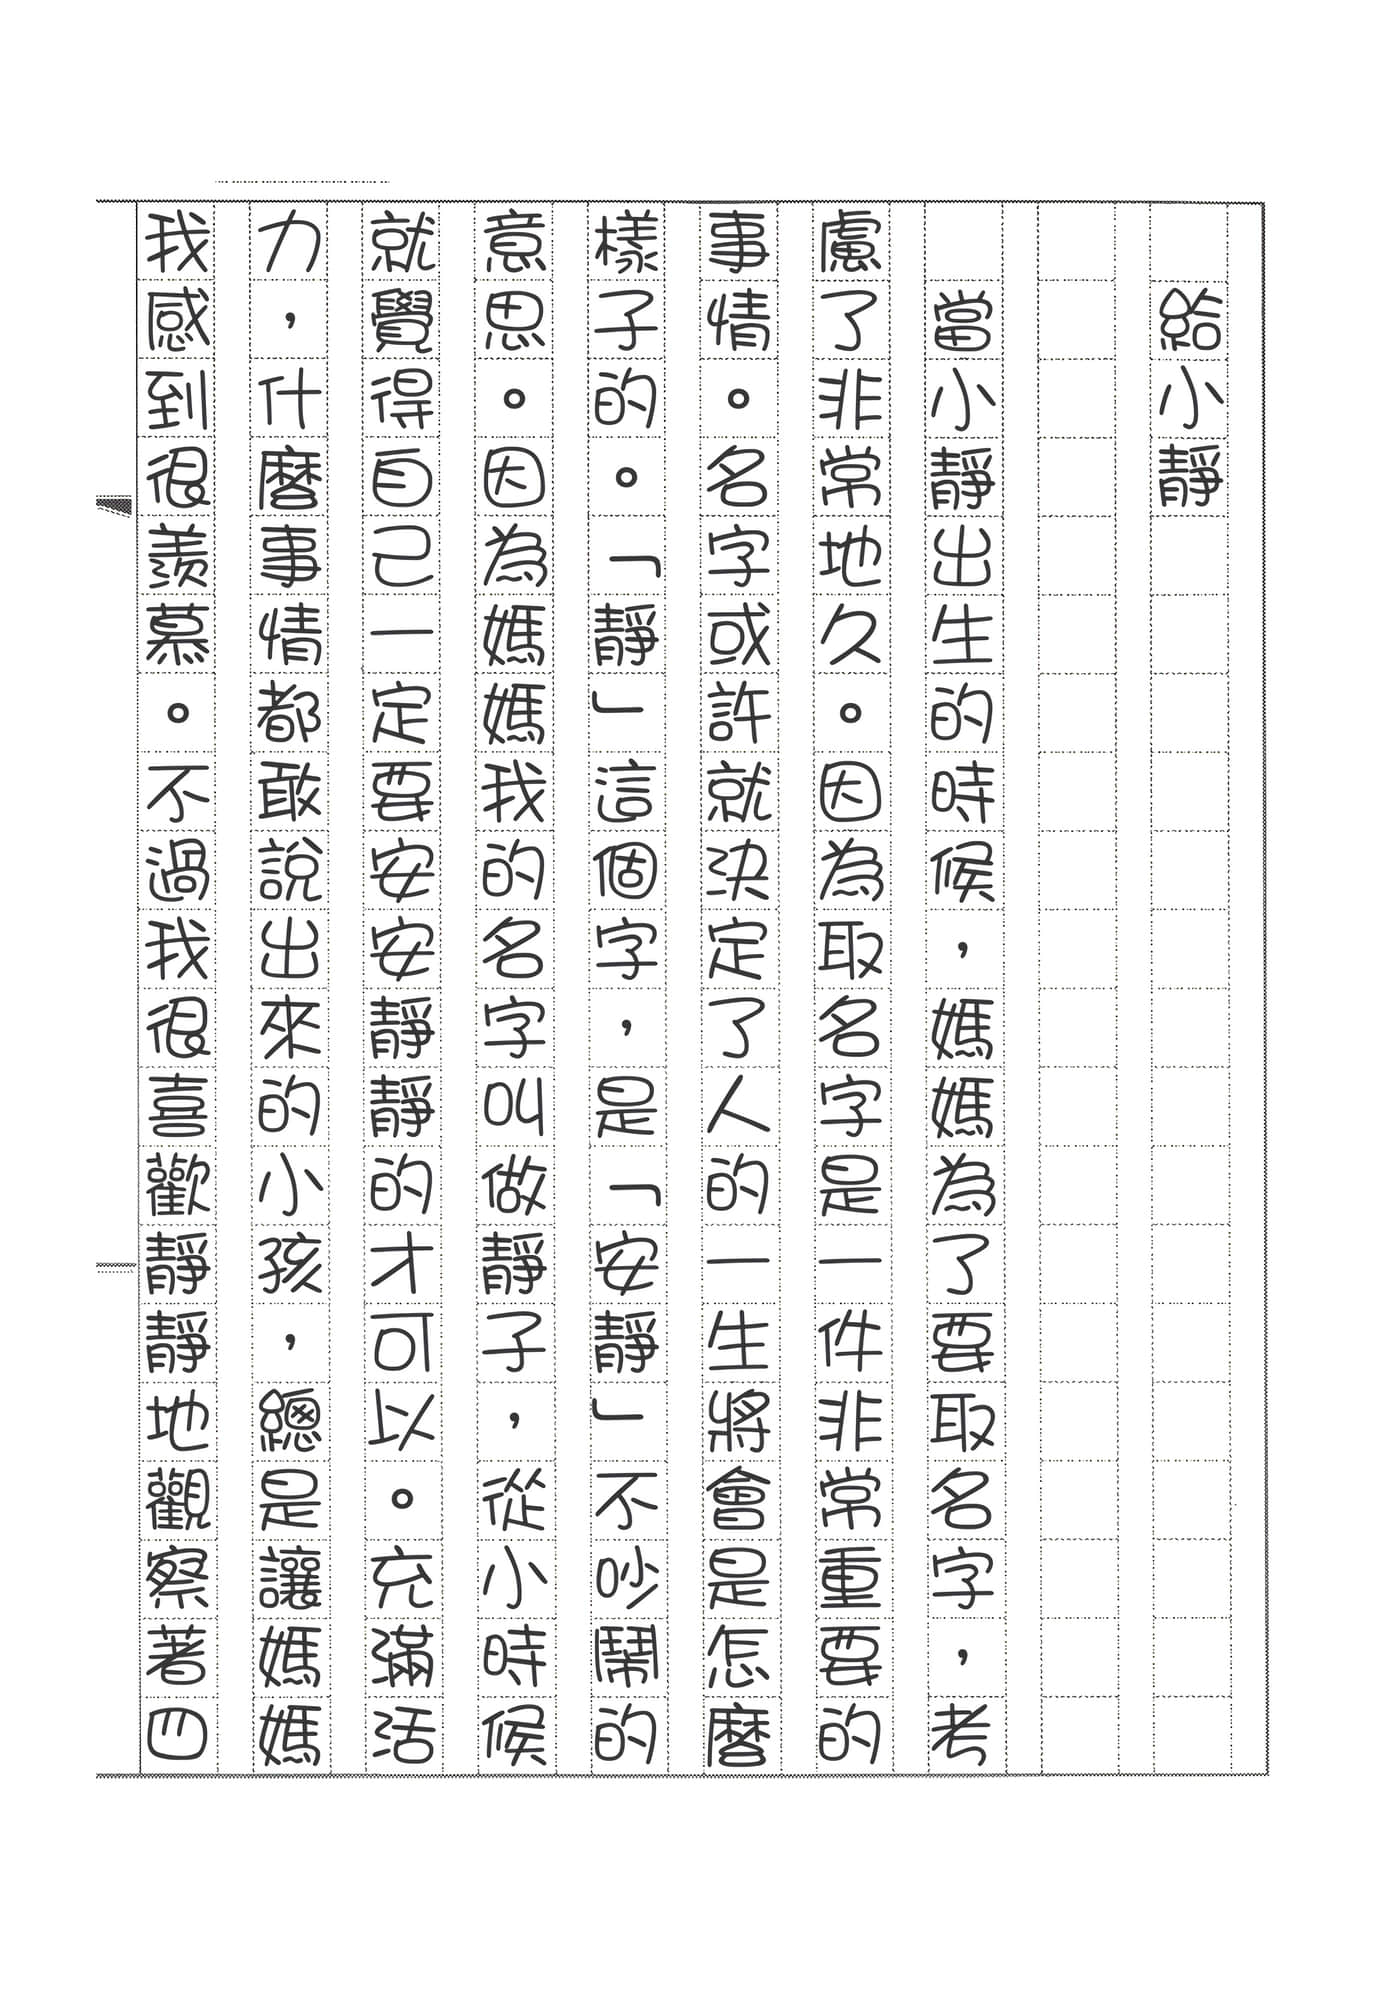 給小靜
當小靜出生的時候，媽媽為了要取名字，考
慮了非常地久。因為取名字是一件非常重要的
事情。名字或許就決定了人的一生將會是怎麼
樣子的。「靜」這個字，是「安靜」不吵鬧的
意思。因為媽媽我的名字叫做靜子，從小時候
就覺得自己一定要安安靜靜的才可以。充滿活
力，什麼事情都敢說出來的小孩，總是讓媽媽
我感到很羨慕。不過我很喜歡靜靜地觀察著四